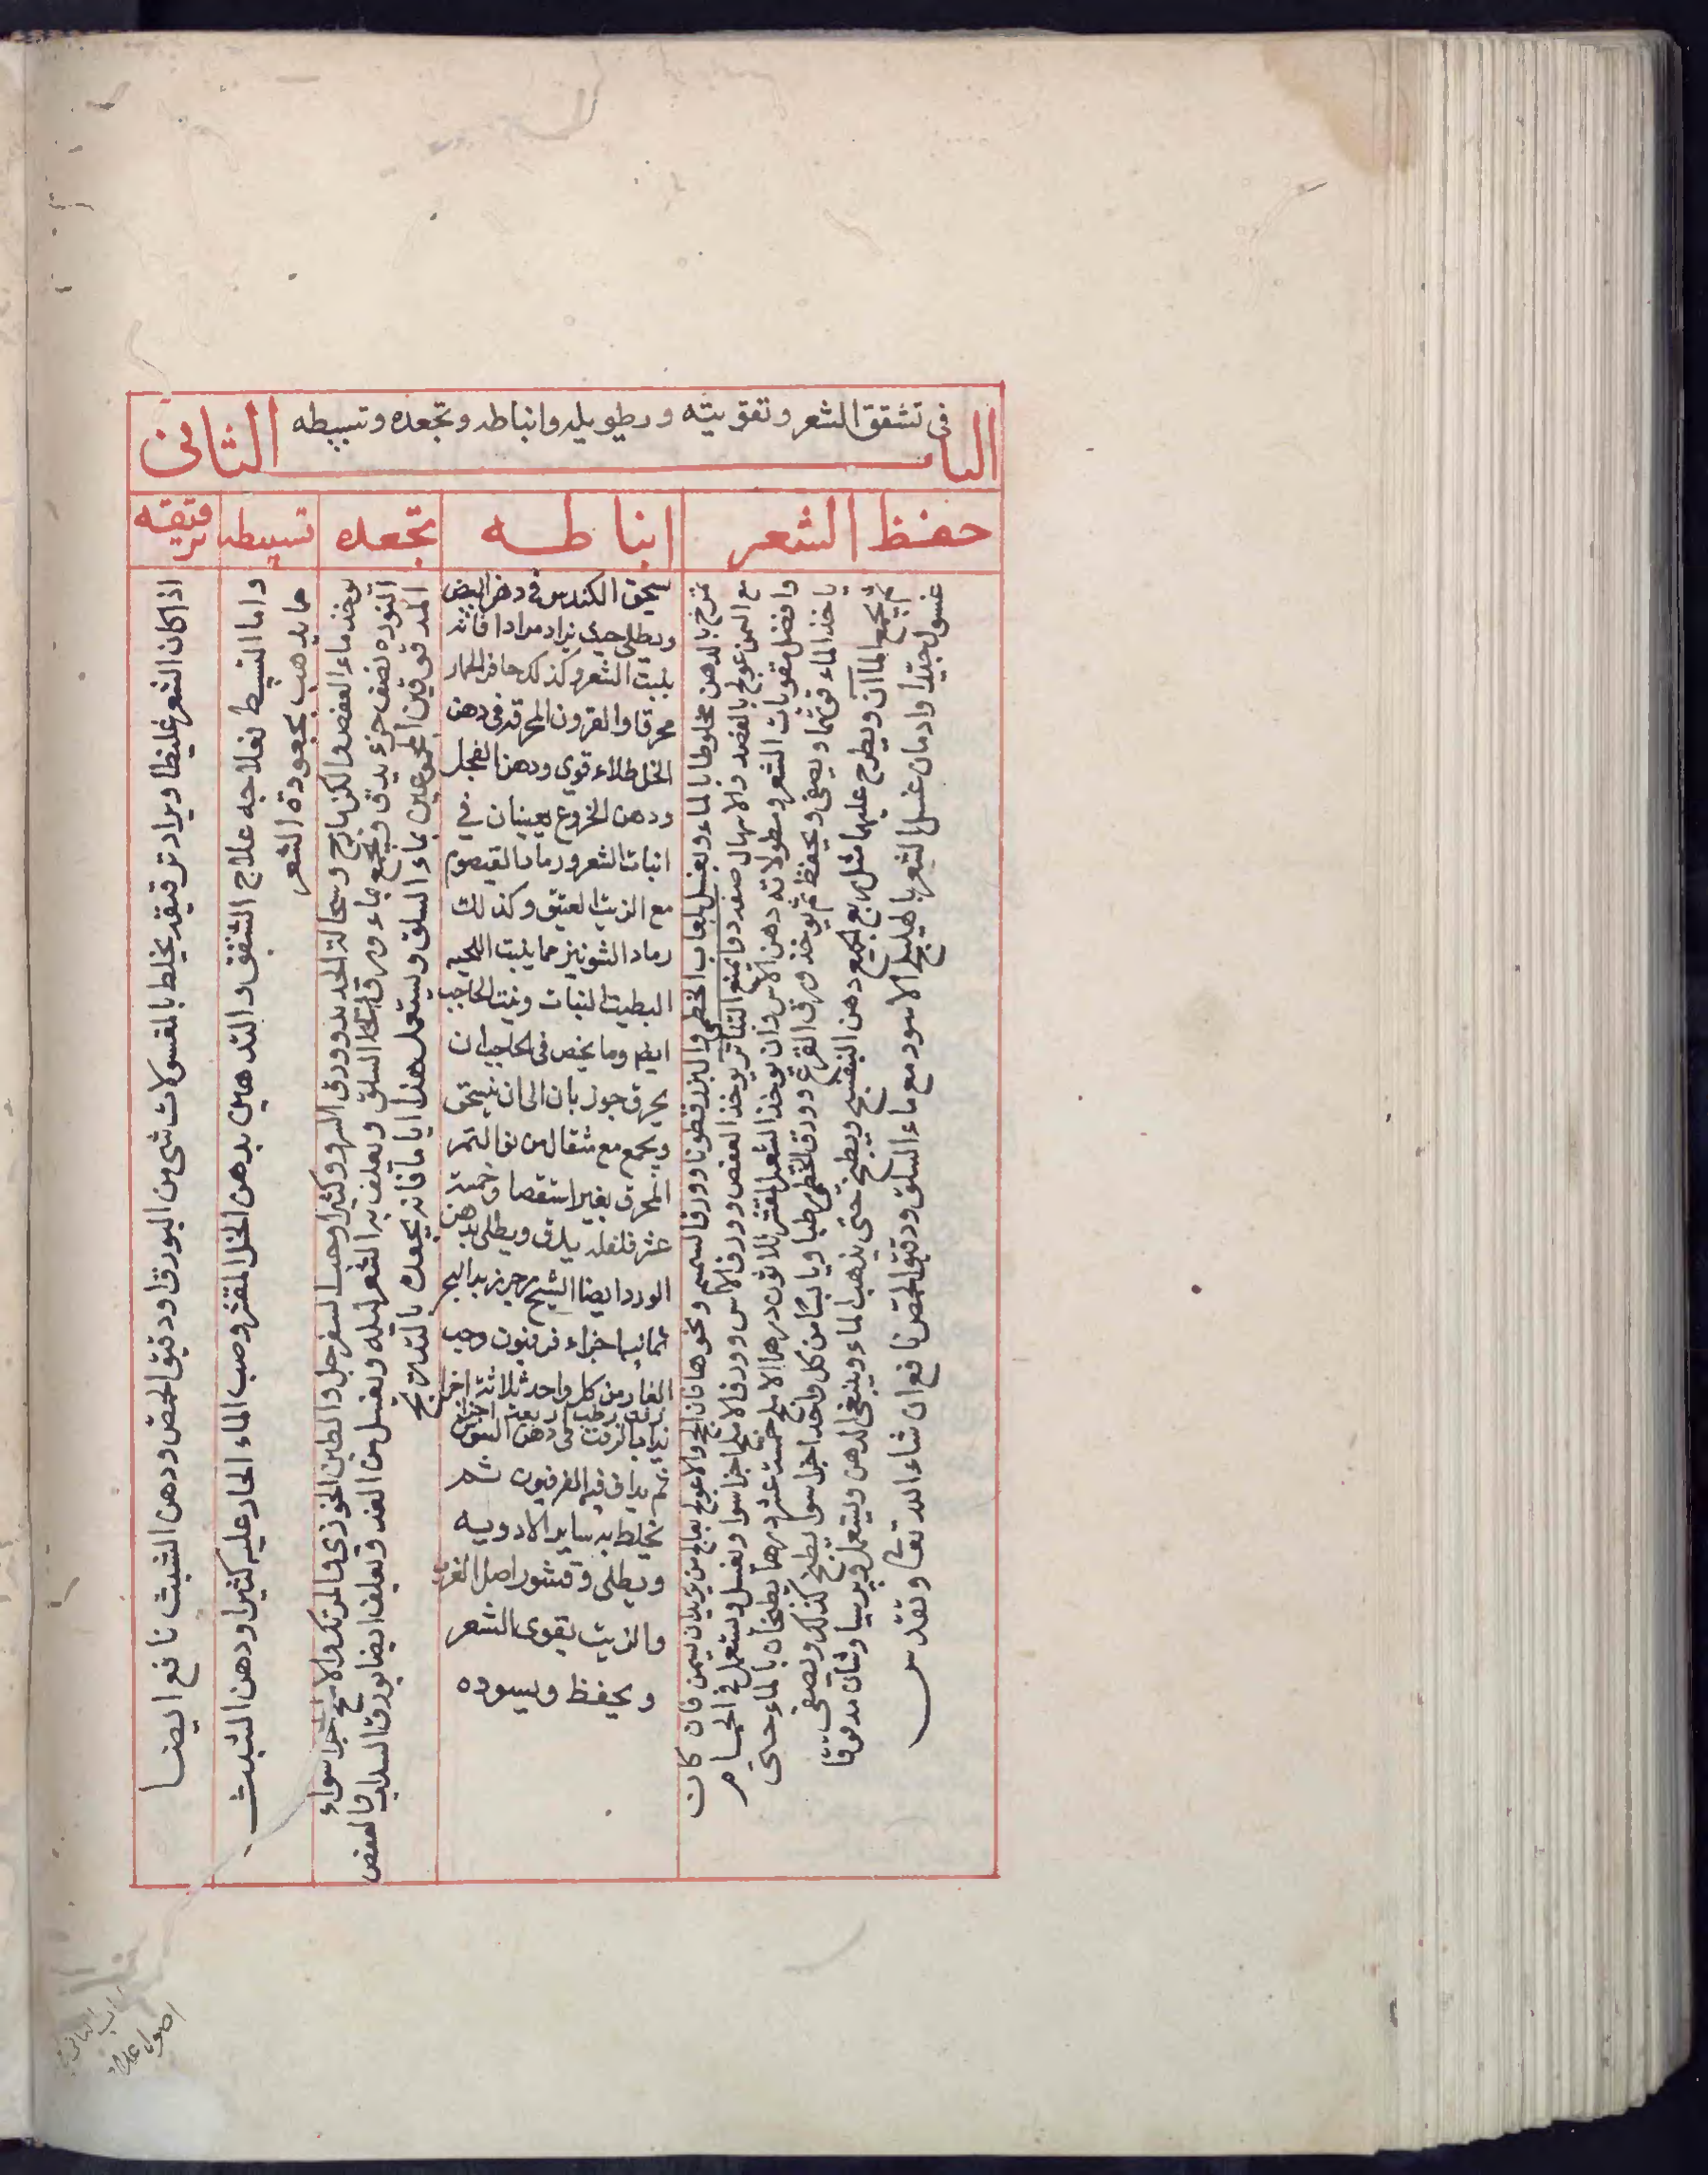 الباب الثانى
فى تشقق الشعر وتقويته وتطويله وانباطه وتجعده وتسبيطه
حفظ الشعر
انباطه
تجعده
تسبيطه
ترقيقه
تمرخ بالدهن مخلوطا بالماء ويغسل بلعاب الخطمى والبزرقطونا وورق السمسم ونحوها فان كان
مع اليبس بالفصد والاسهال وما يمنع التناثر يوخذ العفص وورق الاس وورق الاملج اجزا سوا ويغسل ويستعمل فى الحمام
وافضل مقويات الشعر ومطولاته دهن الاس وان يوخذ الشعير المقشر ثلاثون درهما الاملج خمسة عشر درهما يطبخان بالماء حتى
ياخذ الماء قوتهما ويصفى ويحفظ ثم يوخذ ورق القرع وورق الخطمى رطبا ويابسا من كل واحد اجزا سوا يطبخ كذلك ويصفى
ثم يجمع الماآن ويطرح عليهما مثل ربع الجميع دهن البنفسج ويطبخ حتى يذهب الماء ويبقى الدهن ويستعمل مدقوقا
غسول جيد وادمان غسل الشعر بالهليلج الاسود مع ماء السلق ودقيق الحمص نافع ان شاء الله تعالى وتقدس
يسحق الكندس فى دهن البيض
ويطلى حتى يراد مرادا فانه
ينبت الشعر وكذلك حافر الحمار
محرقا والقرون المحرقه فى دهن
الخل طلاء قوى ودهن الفجل
ودهن الخروع يعينان فى
انبات الشعر ورماد القيصوم
مع الزيت العتيق وكذلك
رماد الشونيز مما ينبت اللحا
البطية النبات وينبت الحاجب
ايضا وما يخص فى الحاجب ان
يحرق جوز بان الى ان يسحق
ويجمع مع مثقال من نوا التمر
المحرق بغير استقصا
عشر فلفله يدق ويطلى بدهن
الورد ايضا الشيح
ثمانيه اجزاء فرفيون وحب
الغار من كل واحد ثلاثة اجزا
يذاب الزفت فى دهن
ثم يداف فيه الفرفيون ثم
يخلط به ساير الادويه
ويطلى وقشور اصل القرب
والزيت يقوى الشعر
ويحفظ ويسوده
يوخذ ماء العفص والكزمازج وسحالة الحديد وورق السرو وكثيرا وحب السفرجل والطين الخوزى والمرتك والاملج اجزا سواء
النوره نصف جزء يدق ويجمع بماء ورق السلق ويغلف به الشعر ليله ويغسل من الغد ويغلف ايضا بورق السدر والعفص
المدقوقين المجموعين بماء السلق ويستعمل هذا اياما فانه يجعده بالتدريج
واما التسبيط فعلاجه علاج التشقق والتدهين بدهن الخل المقشر وصب الماء الحار عليه كثيرا ودهن الشبث
مما يذهب بجعودة الشعر
اذا كان الشعر غليظا ويراد ترقيقه يخلط بالغسولات شى من البورق او دقيق الحمص ودهن الشبث نافع ايضا